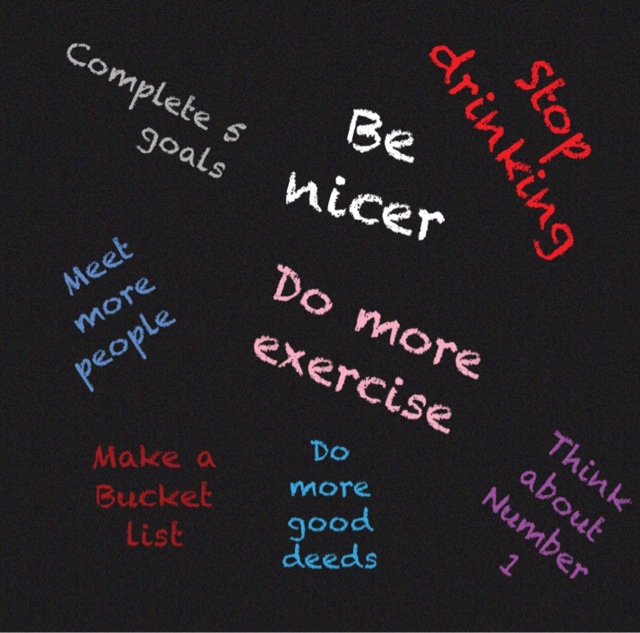 Complete 5
goals
Be
nicer
Stop
drinking
Meet
more
people
Do more
exercise
Make a
Bucket
list
Do
more
good
deeds
Think
about
Number
1